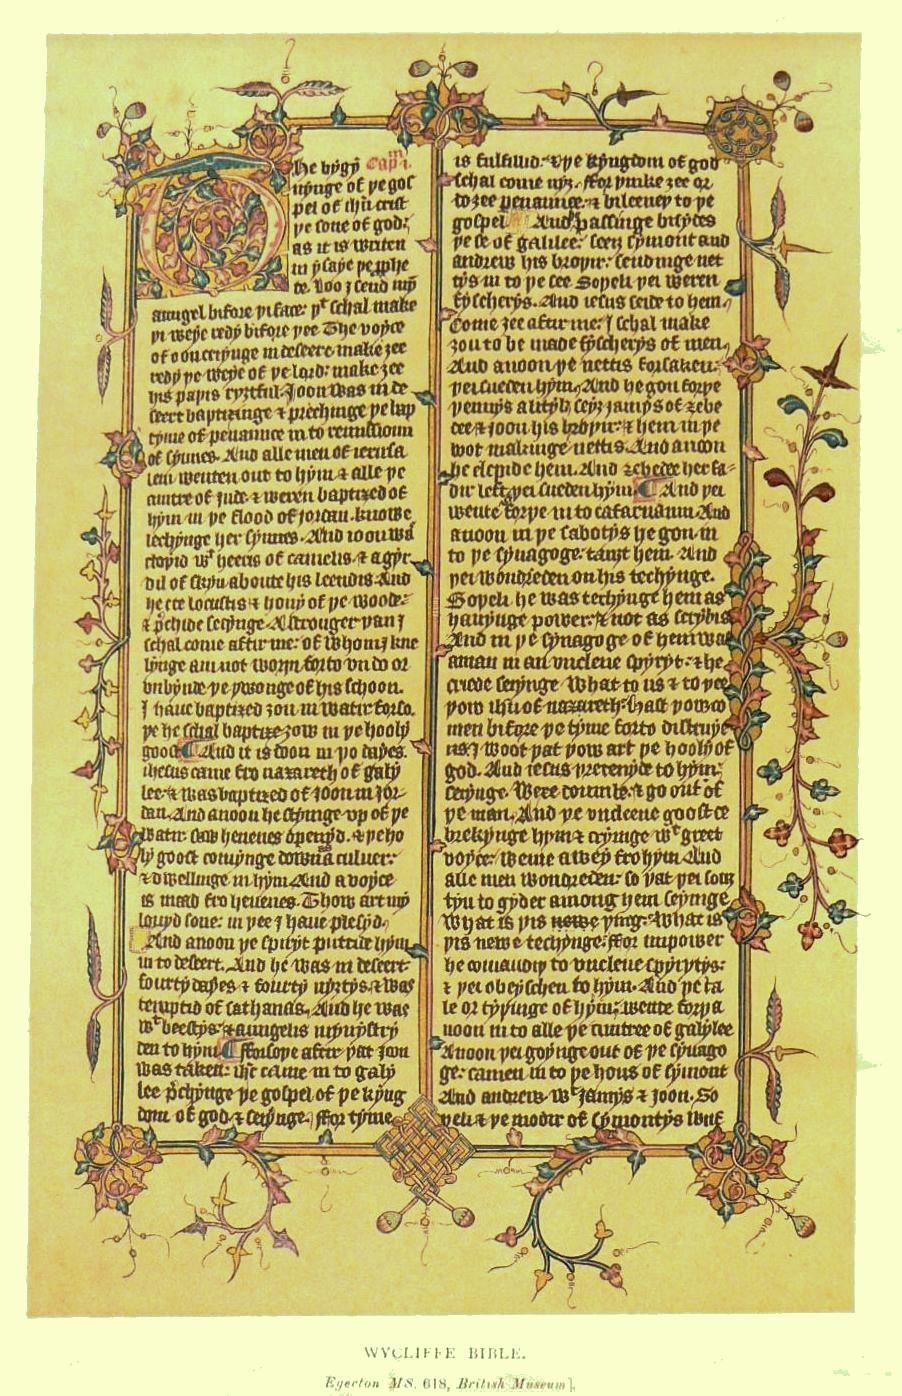 The bygȳ Capm i.
nynge of þe gos
pel of ihū crist
þe sone of god:
as it is writen
in ysaye þe pphe
te. Loo J send myn
aungel bifore þi face: þt schal make
þi weye redy bifore þee The voyce
of oon criynge in deseert make ȝee
redy þe weye of þe lord: make ȝee
his paþis ryȝtful. Joon was in de
seert baptizinge & prechinge þe bap
tyme of penaunce in to remissioun
of synnes. And alle men of ierusa
lem wenten out to hym & alle þe
cuntre of jude & weren baptized of
hym in þe flood of jordan. knowe
lechynge her synnes. And ioon was
cloþid wt heeris of camelis & a gyr
dil of skyn aboute his leendis And
he eet locustis & hony of þe woode:
& p̄chide seiynge. A strouger þan J
schal come aftir me: of whom J kne
lynge am not worþi forto vndo or
vnbynde þe þwonge of his schoon.
J haue baptized ȝou in watir forso.
þe he schal baptize ȝow in þe hooly
goost ¶ And it is doon in þo dayes.
ihesus came fro nazareth of galy
lee & was baptized of joon in jor
dan. And anoon he stȳinge vp of þe
watir. saw heuenes openyd. & þe ho
ly goost comynge down as a culuer:
& dwellinge in hym And a voyce
is maad fro heuenes. Thow art my
louyd sone: in þee J haue plesyd.
And anoon þe spiryt puttide hym
in to desert. And he was in deseert
fourty dayes & fourty nyȝtys. & was
temptid of sathanas. And he was
wt beestys & aungelis mynystry
den to hym ¶ fforsoþe aftir þat Joon
was taken: ihc came in to galy
lee p̄chynge þe gospel of þe kyng
dom of god & seiynge. ffor tyme
is fulfillid: & þe kyngdom of god
schal come nyȝ. fforþinke ȝee or
do ȝee penaunce & bileeuey to þe
gospel And passinge bisydes
þe se of galilee: seeȝ symont and
andrew his broþir: sendinge net
tys in to þe see Soþeli þei weren
fyscherys. And iesus seide to hem
Come ȝee aftir me: J schal make
ȝou to be made fyscherys of men
And anoon þe nettis forsaken:
þei sueden hym. And he gon forþe
þennys a lityl: seyȝ jamys of zebe
dee & joon his broþir: & hem in þe
boot makinge nettis. And anoon
he clepide hem. And zebedee her fa-
dir left: þei sueden hym ¶ And þei
wente forþe in to cafarnaum And
anoon in þe sabotys he gon in
to þe synagoge: tauȝt hem. And
þei wondreden on his techynge.
Soþeli he was techynge hem as
hauynge power: & not as scrybis
And in þe synagoge of hem was
aman in an vnclene spyryt: & he
criede seiynge What to us & to þee
þow ihū of nazareth: Hast þow co
men bifore þe tyme forto distruye
us: J woot þat þow art þe hooly of
god. And iesus þretenyde to hym:
seiynge. Were doumb: & go out of
þe man. And þe vnclene goost te
brekynge hym & criynge wt greet
voyce: wente awey fro hym And
alle men wondreden: so þat þei souȝ
tyn to gyder among hem seiynge
What is þis newe þing: What is
þis newe techynge: ffor in power
he comaundiþ to vnclene spyrytys:
& þei obeyschen to hym. And þe ta
le or tyþinge of hym: wente forþ a
noon in to alle þe cuntree of galylee
Anoon þei goynge out of þe synago
ge: camen in to þe hous of symont
And andrew: wt jamys & joon. So
þeli & þe modir of symontys wyf
WYCLIFFE BIBLE.
Egerton MS. 618, British Museum].